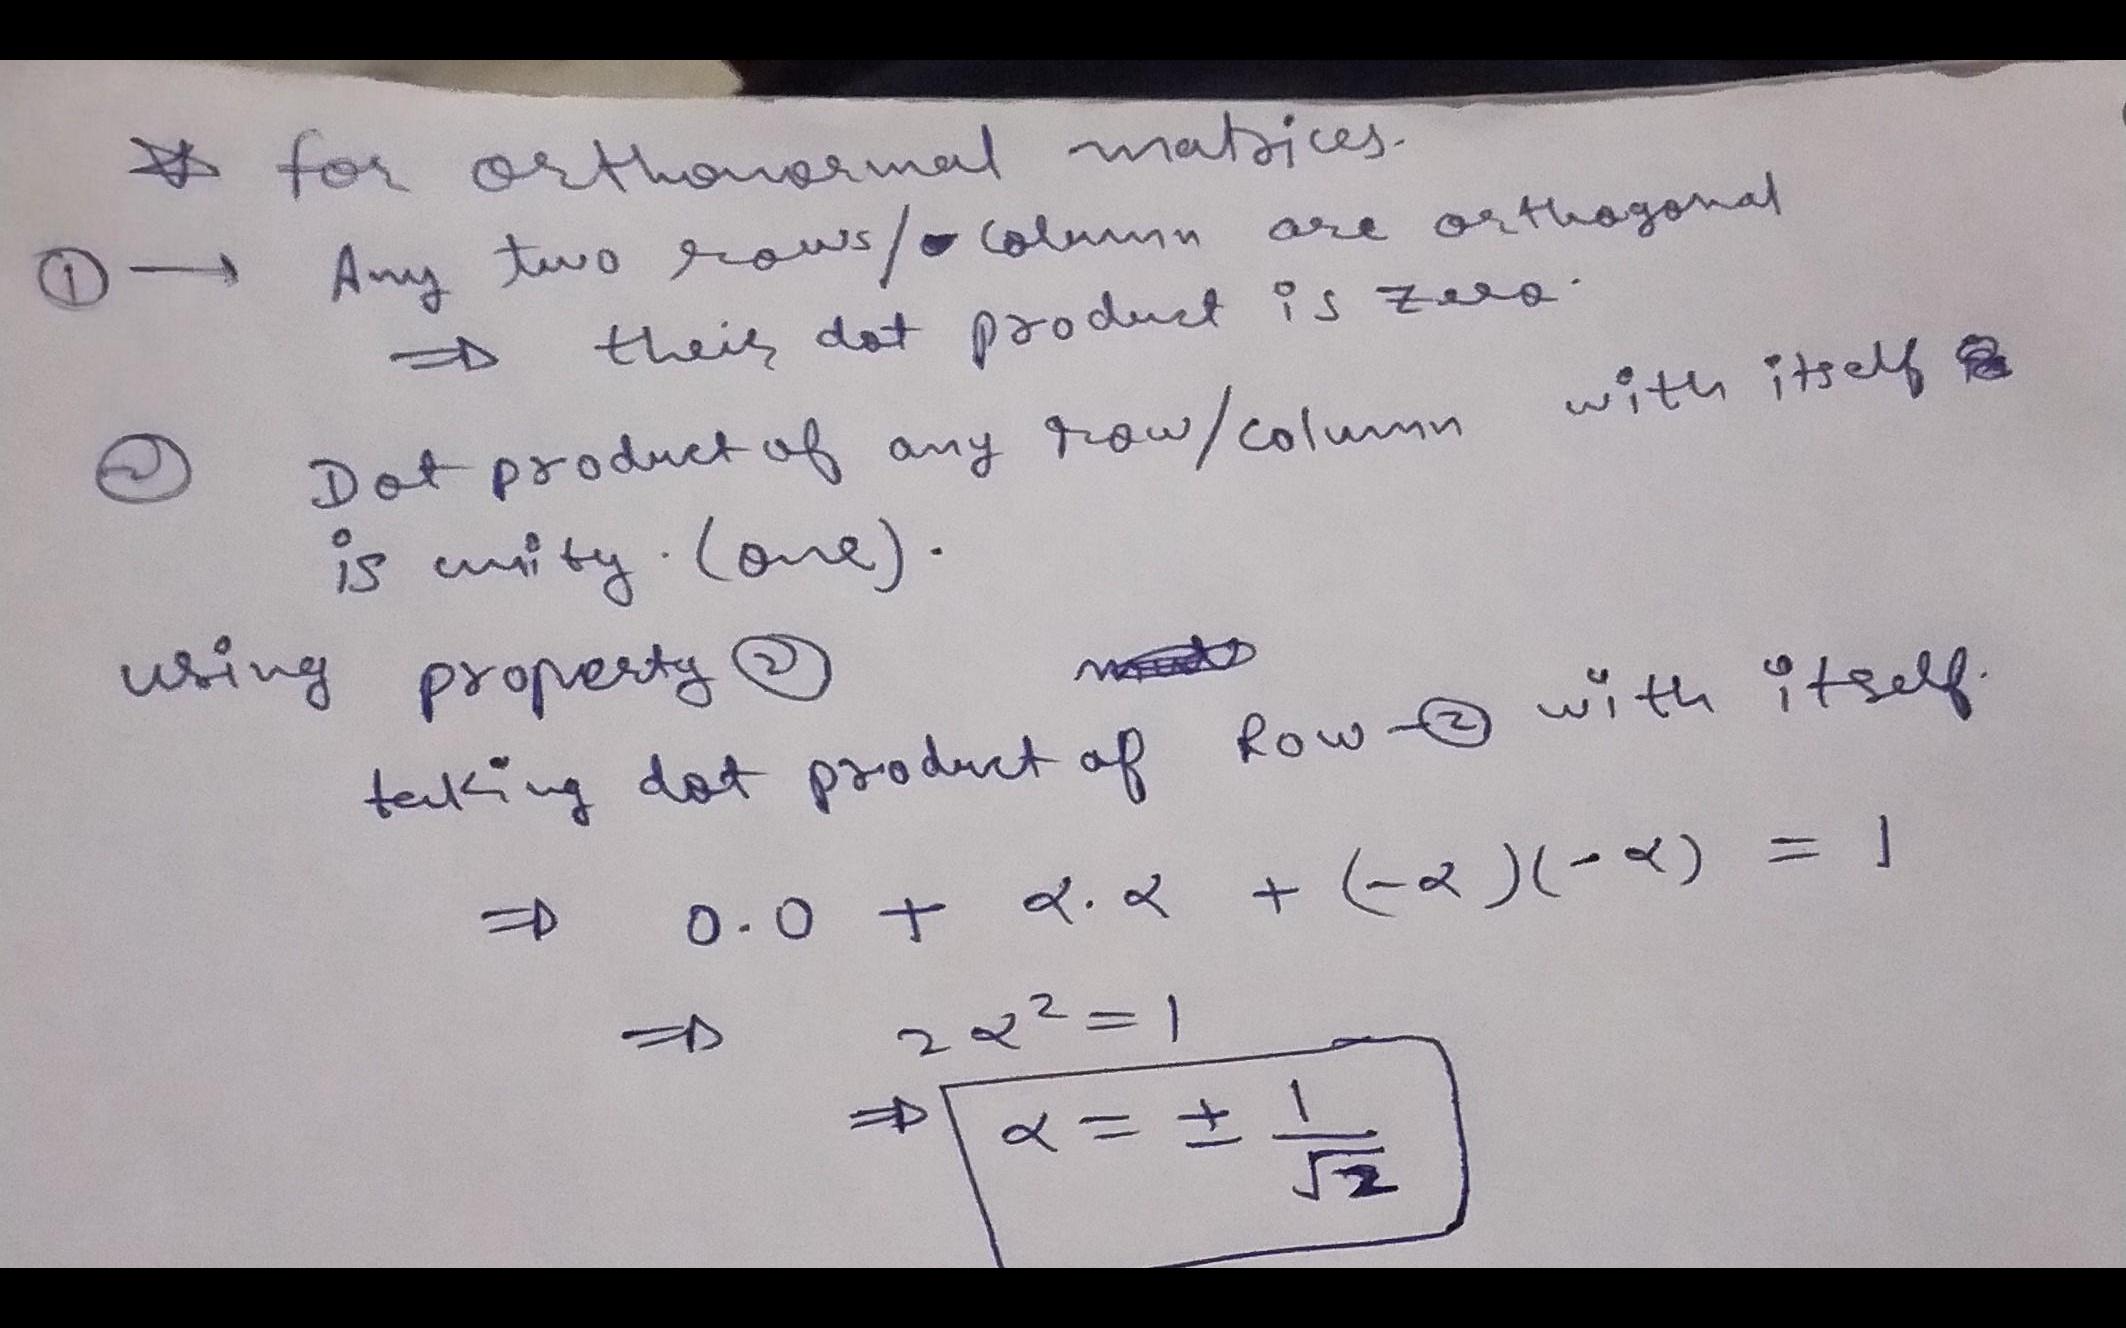 * for orthonormal matrices.
① → Any two rows/column are orthogonal
⇒ their dot product is zero.
② Dot product of any row/column with itself
is unity. (one).
using property ②
taking dot product of Row-② with itself.
⇒ 0.0 + α.α + (-α)(-α) = 1
⇒ 2α² = 1
⇒ α = ± 1/√2